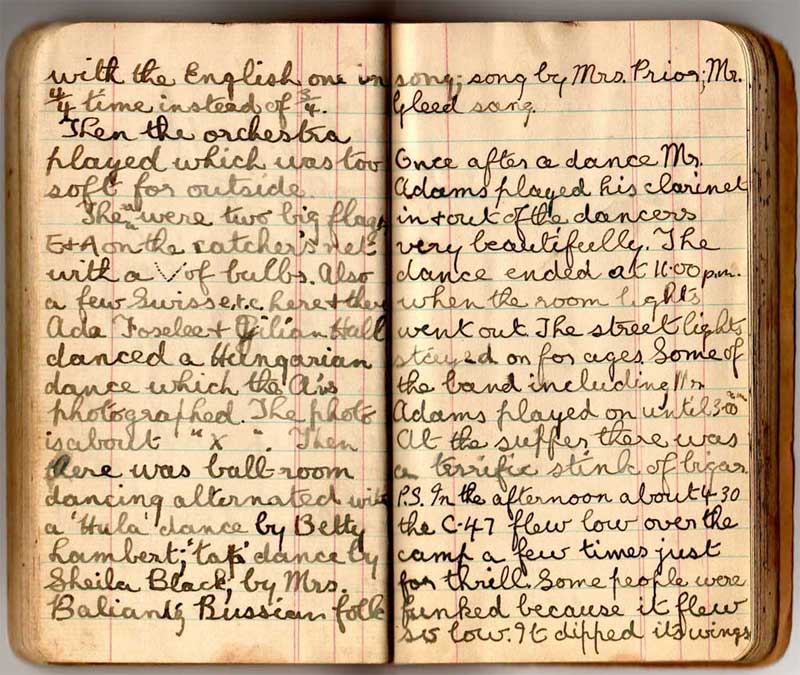 with the English one in
4/4 time instead of 3/4.
Then the orchestra
played which was too
soft for outside.
There were two big flags
E+A on the catcher's net
with a V of bulbs. Also
a few Swiss e.t.c. here + they
Ada Foxlee + Gilian Hall
danced a Hungarian
dance which the A's
photographed. The photo
is about " X ". Then
there was ball-room
dancing alternated with
a 'Hula' dance by Betty
Lambert; 'tap' dance by
Sheila Black; by Mrs.
Baliantz Russian folk
song; song by Mrs. Prior; Mr.
Gleed sang.
Once after a dance Mr.
Adams played his clarinet
in + out of the dancers
very beautifully. The
dance ended at 11.00 p.m.
when the room lights
went out. The street lights
stayed on for ages. Some of
the band including Mr
Adams played on until 3.00 am
At the supper there was
a terrific stink of cigars
P.S. In the afternoon about 4.30
the C-47 flew low over the
camp a few times just
for thrill. Some people were
funked because it flew
so low. It dipped its wings